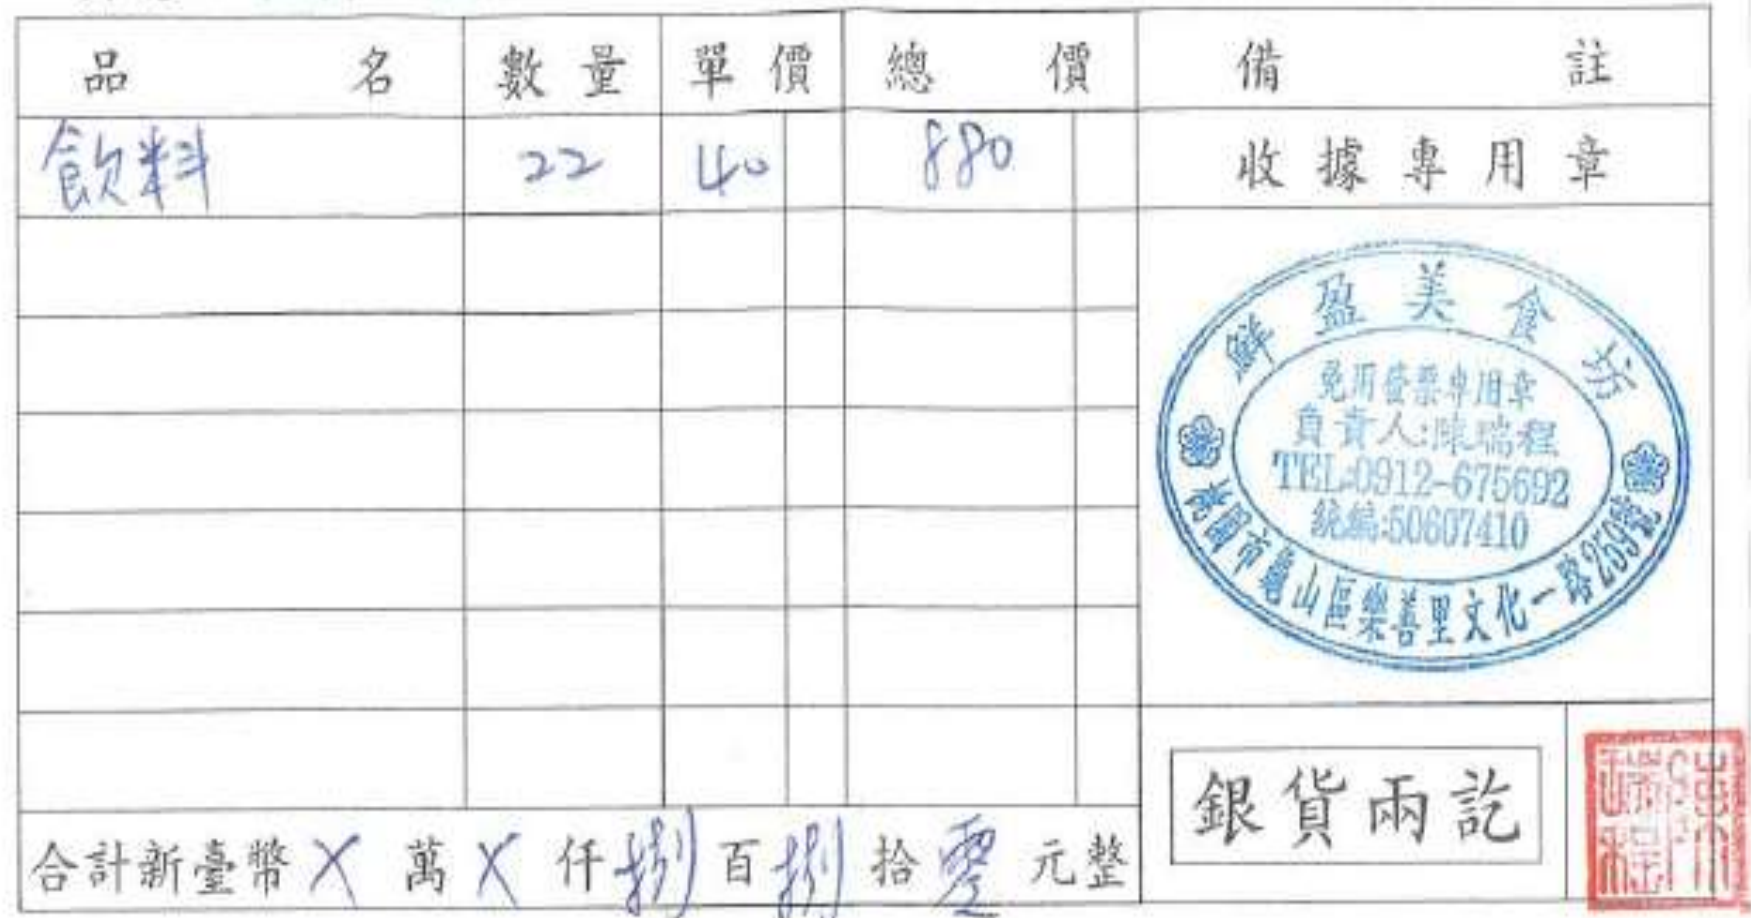 品名 數量 單價 總價 備註
飲料 22 40 880 收據專用章
鮮盈美食坊
免用發票專用章
負責人:陳瑞程
TEL:0912-675692
統編:50607410
桃園市龜山區樂善里文化一路259號
銀貨兩訖
陳瑞程
合計新臺幣X萬X仟捌百捌拾零元整